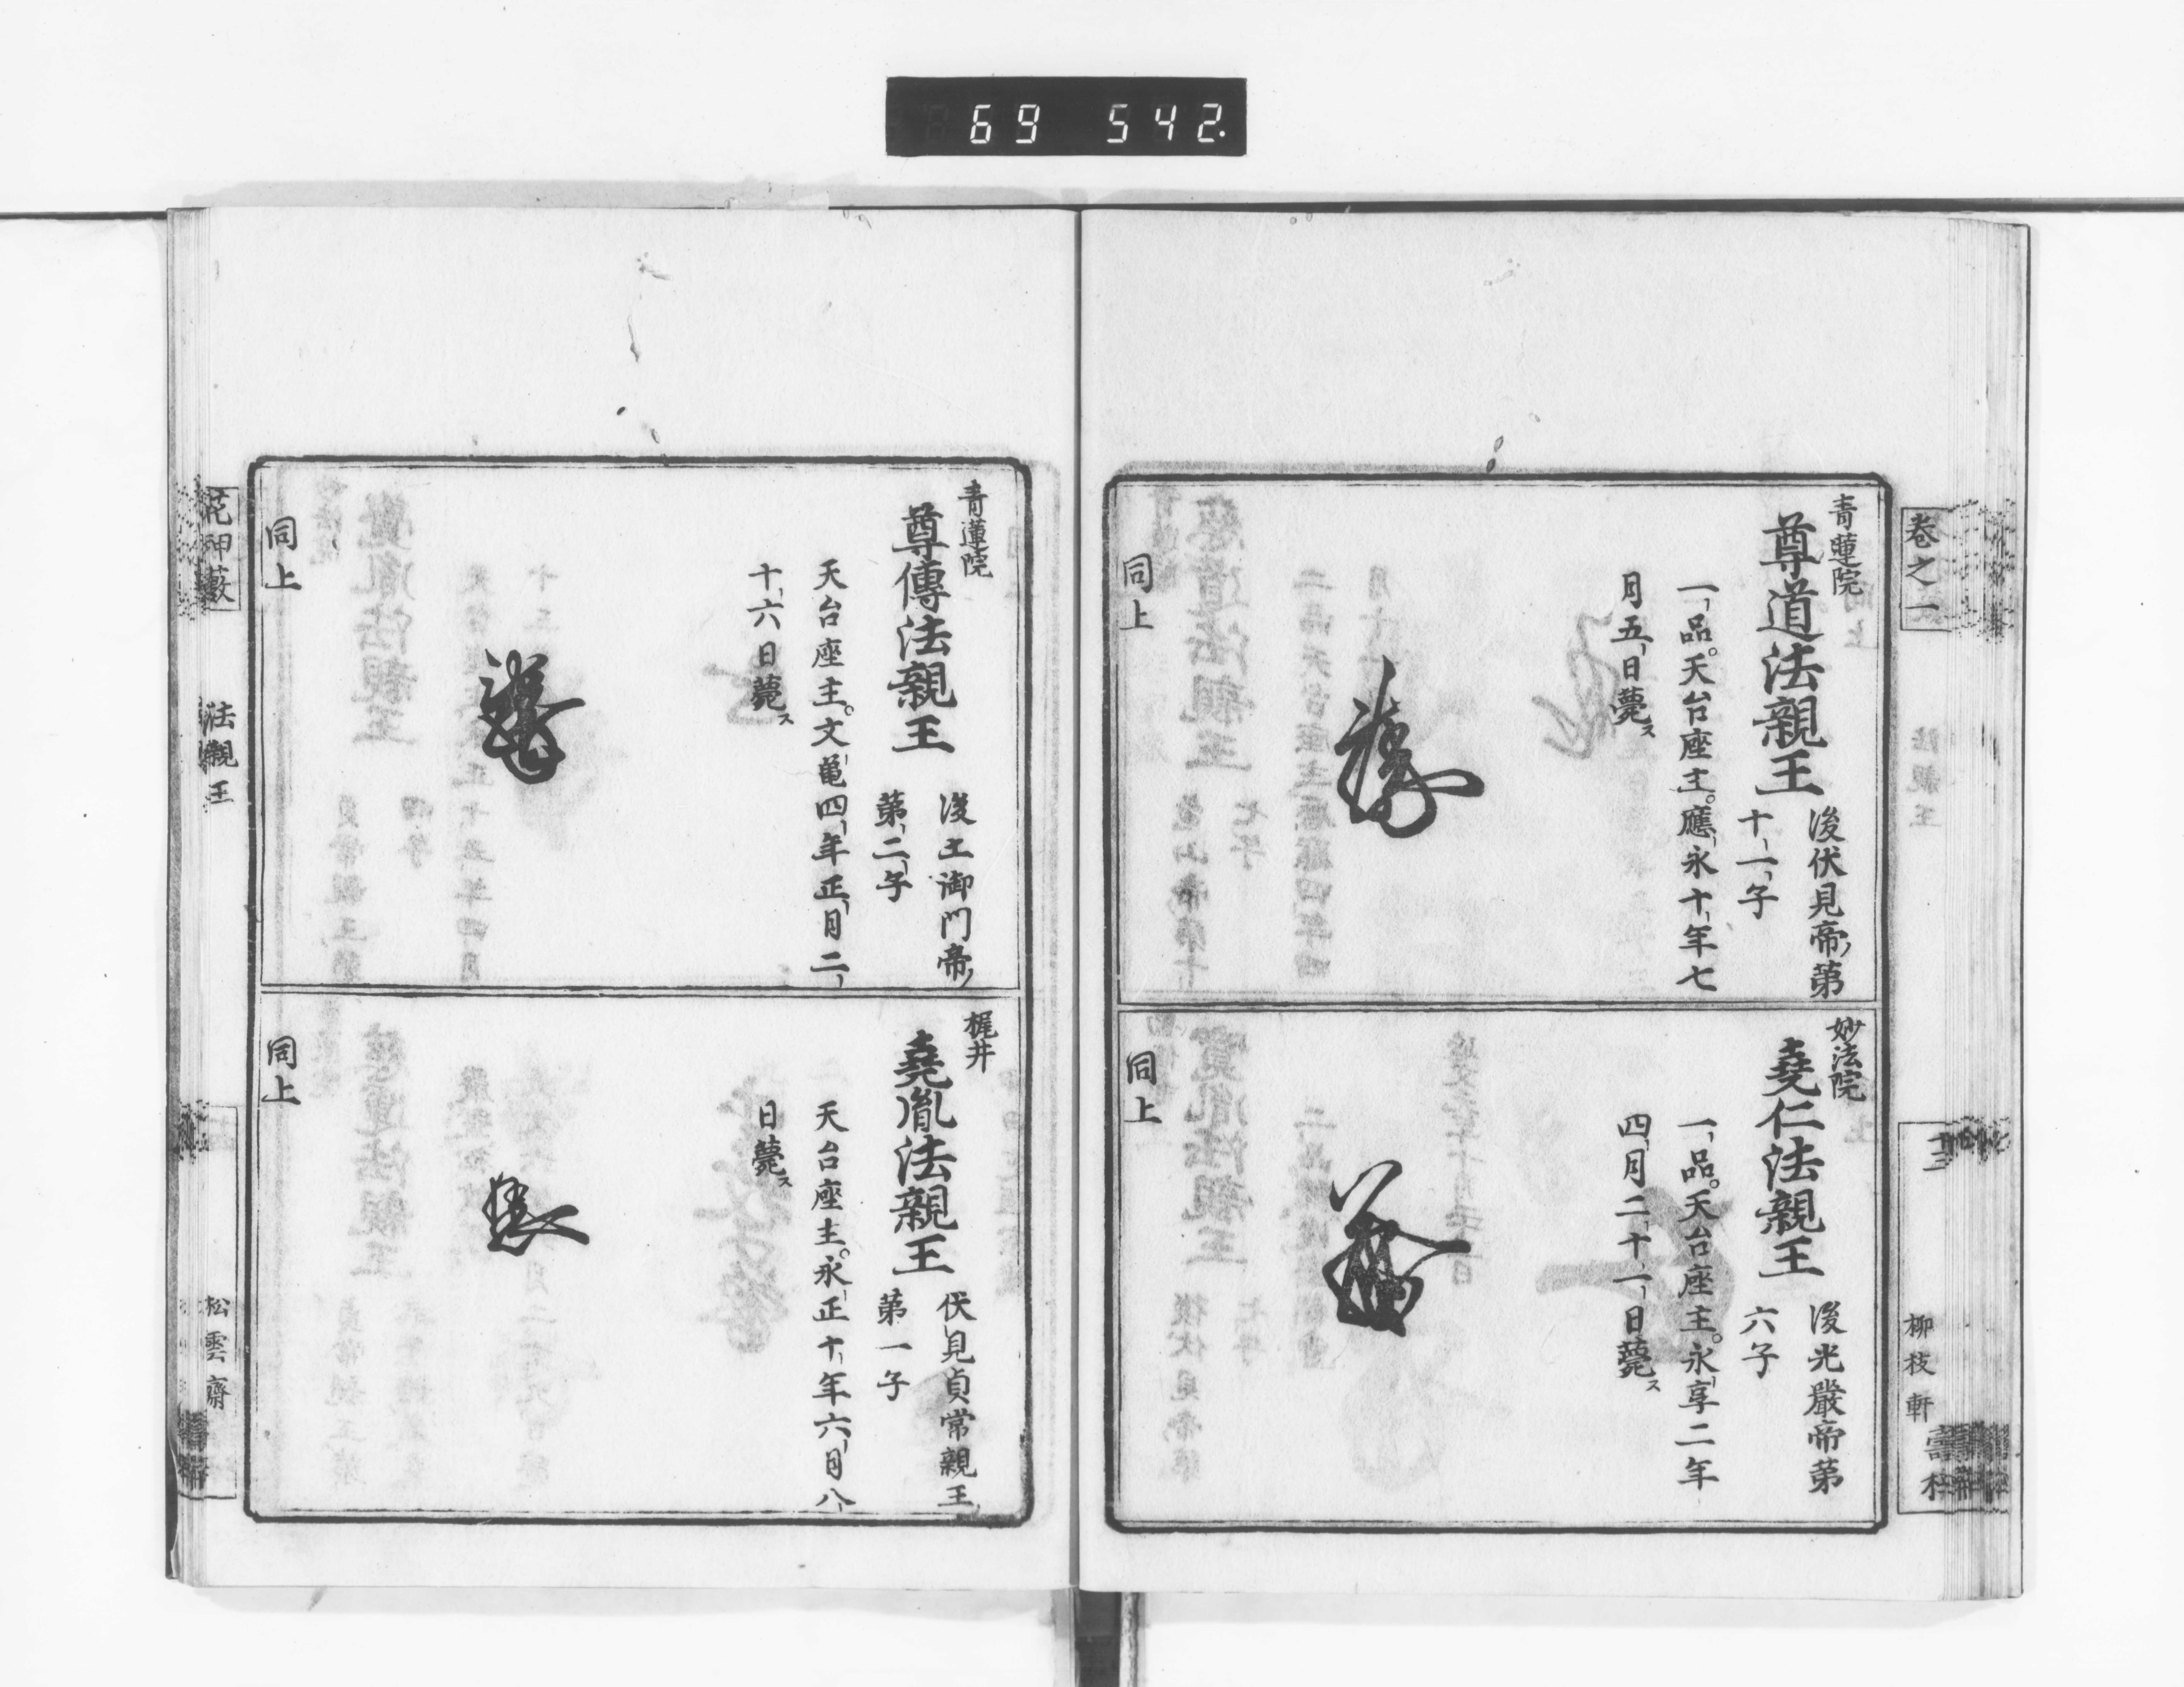 69 542.
卷之一
柳枝軒
青蓮院
尊道法親王
後伏見帝ノ第
十一子
一品。天台座主。應永十年七
月五日薨ス
同上
妙法院
堯仁法親王
後光嚴帝第
六子
一品。天台座主。永享二年
四月二十一日薨ス
同上
青蓮院
尊傳法親王
後土御門帝ノ
第二子
天台座主。文龜四年正月二
十六日薨ス
同上
梶井
堯胤法親王
伏見貞常親王
第一子
天台座主。永正十年六月八
日薨ス
同上
花押藪
法親王
松雲齋